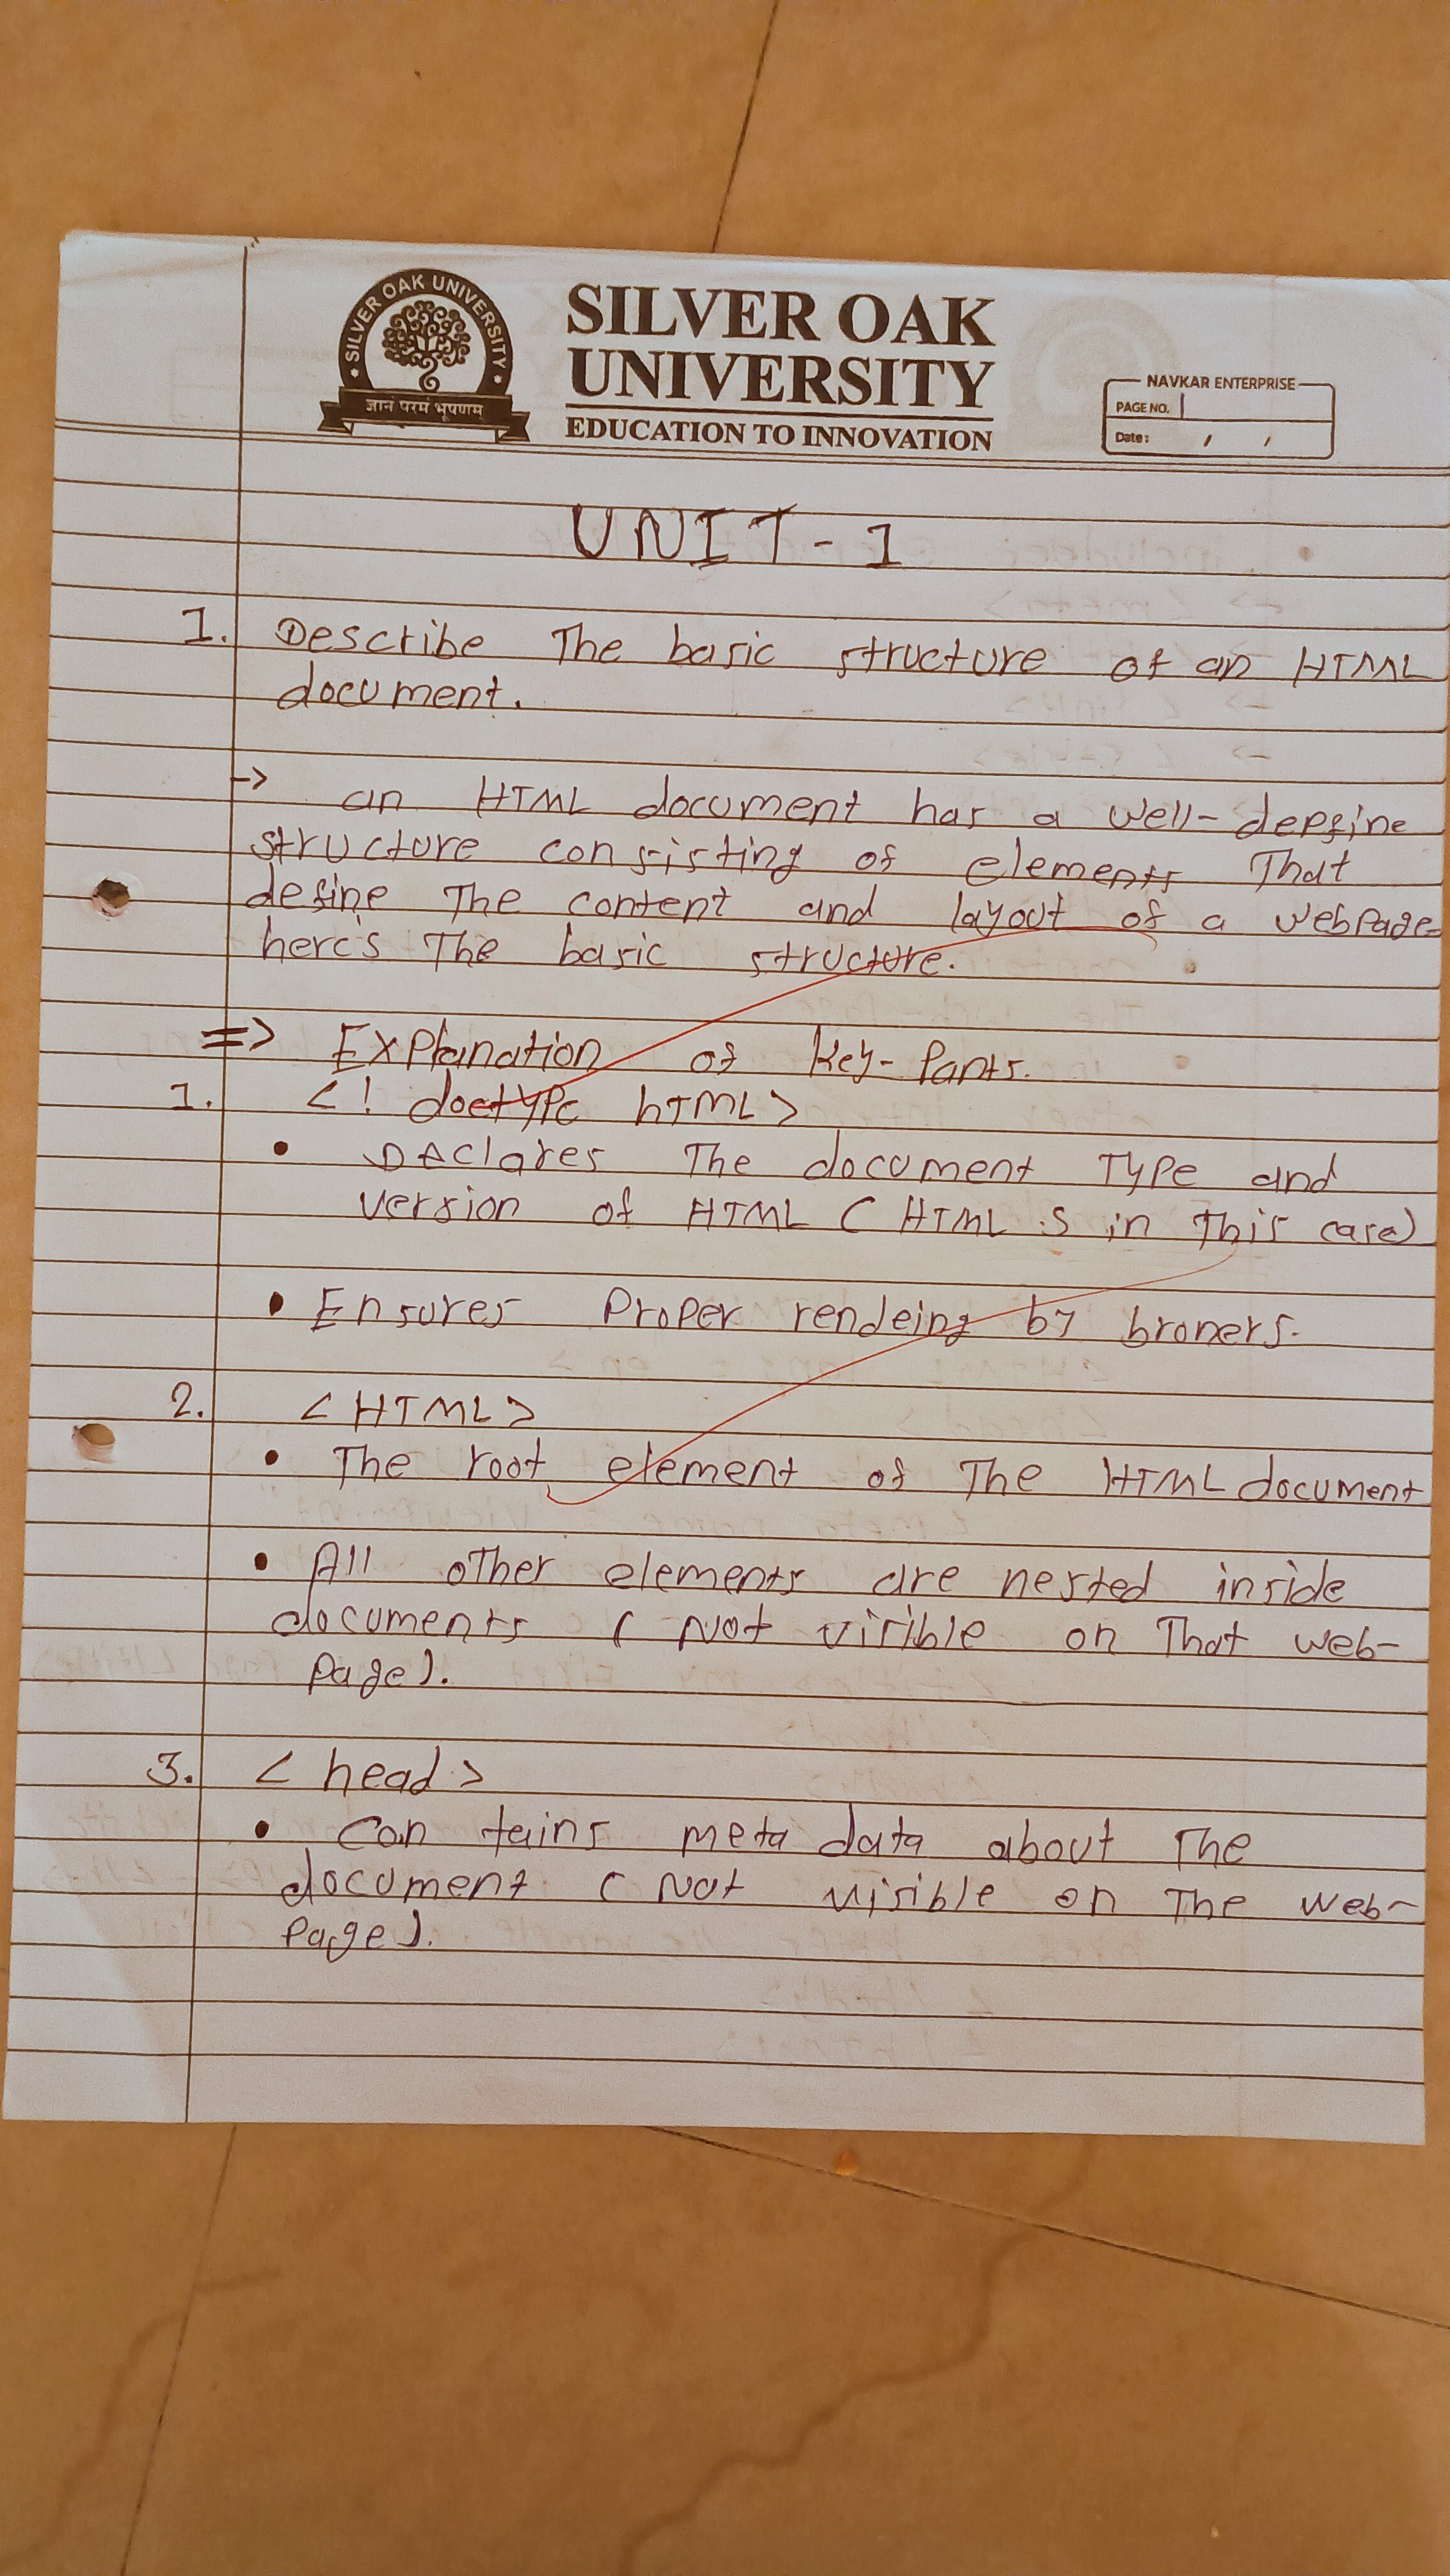 SILVER OAK UNIVERSITY
ज्ञानं परमं भूषणम्
SILVER OAK
UNIVERSITY
EDUCATION TO INNOVATION
NAVKAR ENTERPRISE
PAGE NO. 1
Date: / /
UNIT-1
1. Describe The basic structure of an HTML
document.
-> an HTML document has a well-depfine
structure consisting of elements That
define The content and layout of a webpage
here's The basic structure.
=> Explanation of Key-Parts.
1. <! doctype hTML>
• DEclares The document Type and
version of HTML ( HTML 5 in This case)
• Ensures Proper rendeing by broners.
2. <HTML>
• The root element of The HTML document
• All other elements are nested inside
documents ( Not visible on That web-
page).
3. < head >
• Con tains meta data about The
document ( Not visible on The web-
page).